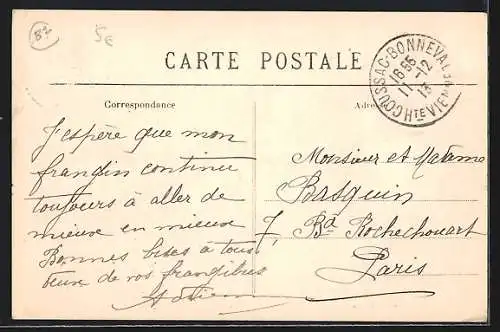 87
5€
CARTE POSTALE
COUSSAC-BONNEVAL
16 55
11 -12
13
HTE VIENNE
Correspondance
J'espère que mon
frangin continue
toujours à aller de
mieux en mieux
Bonnes bises à tous
deux de vos frangibus
Adrien
Monsieur et Madame
Basquin
7, Bd Rochechouart
Paris